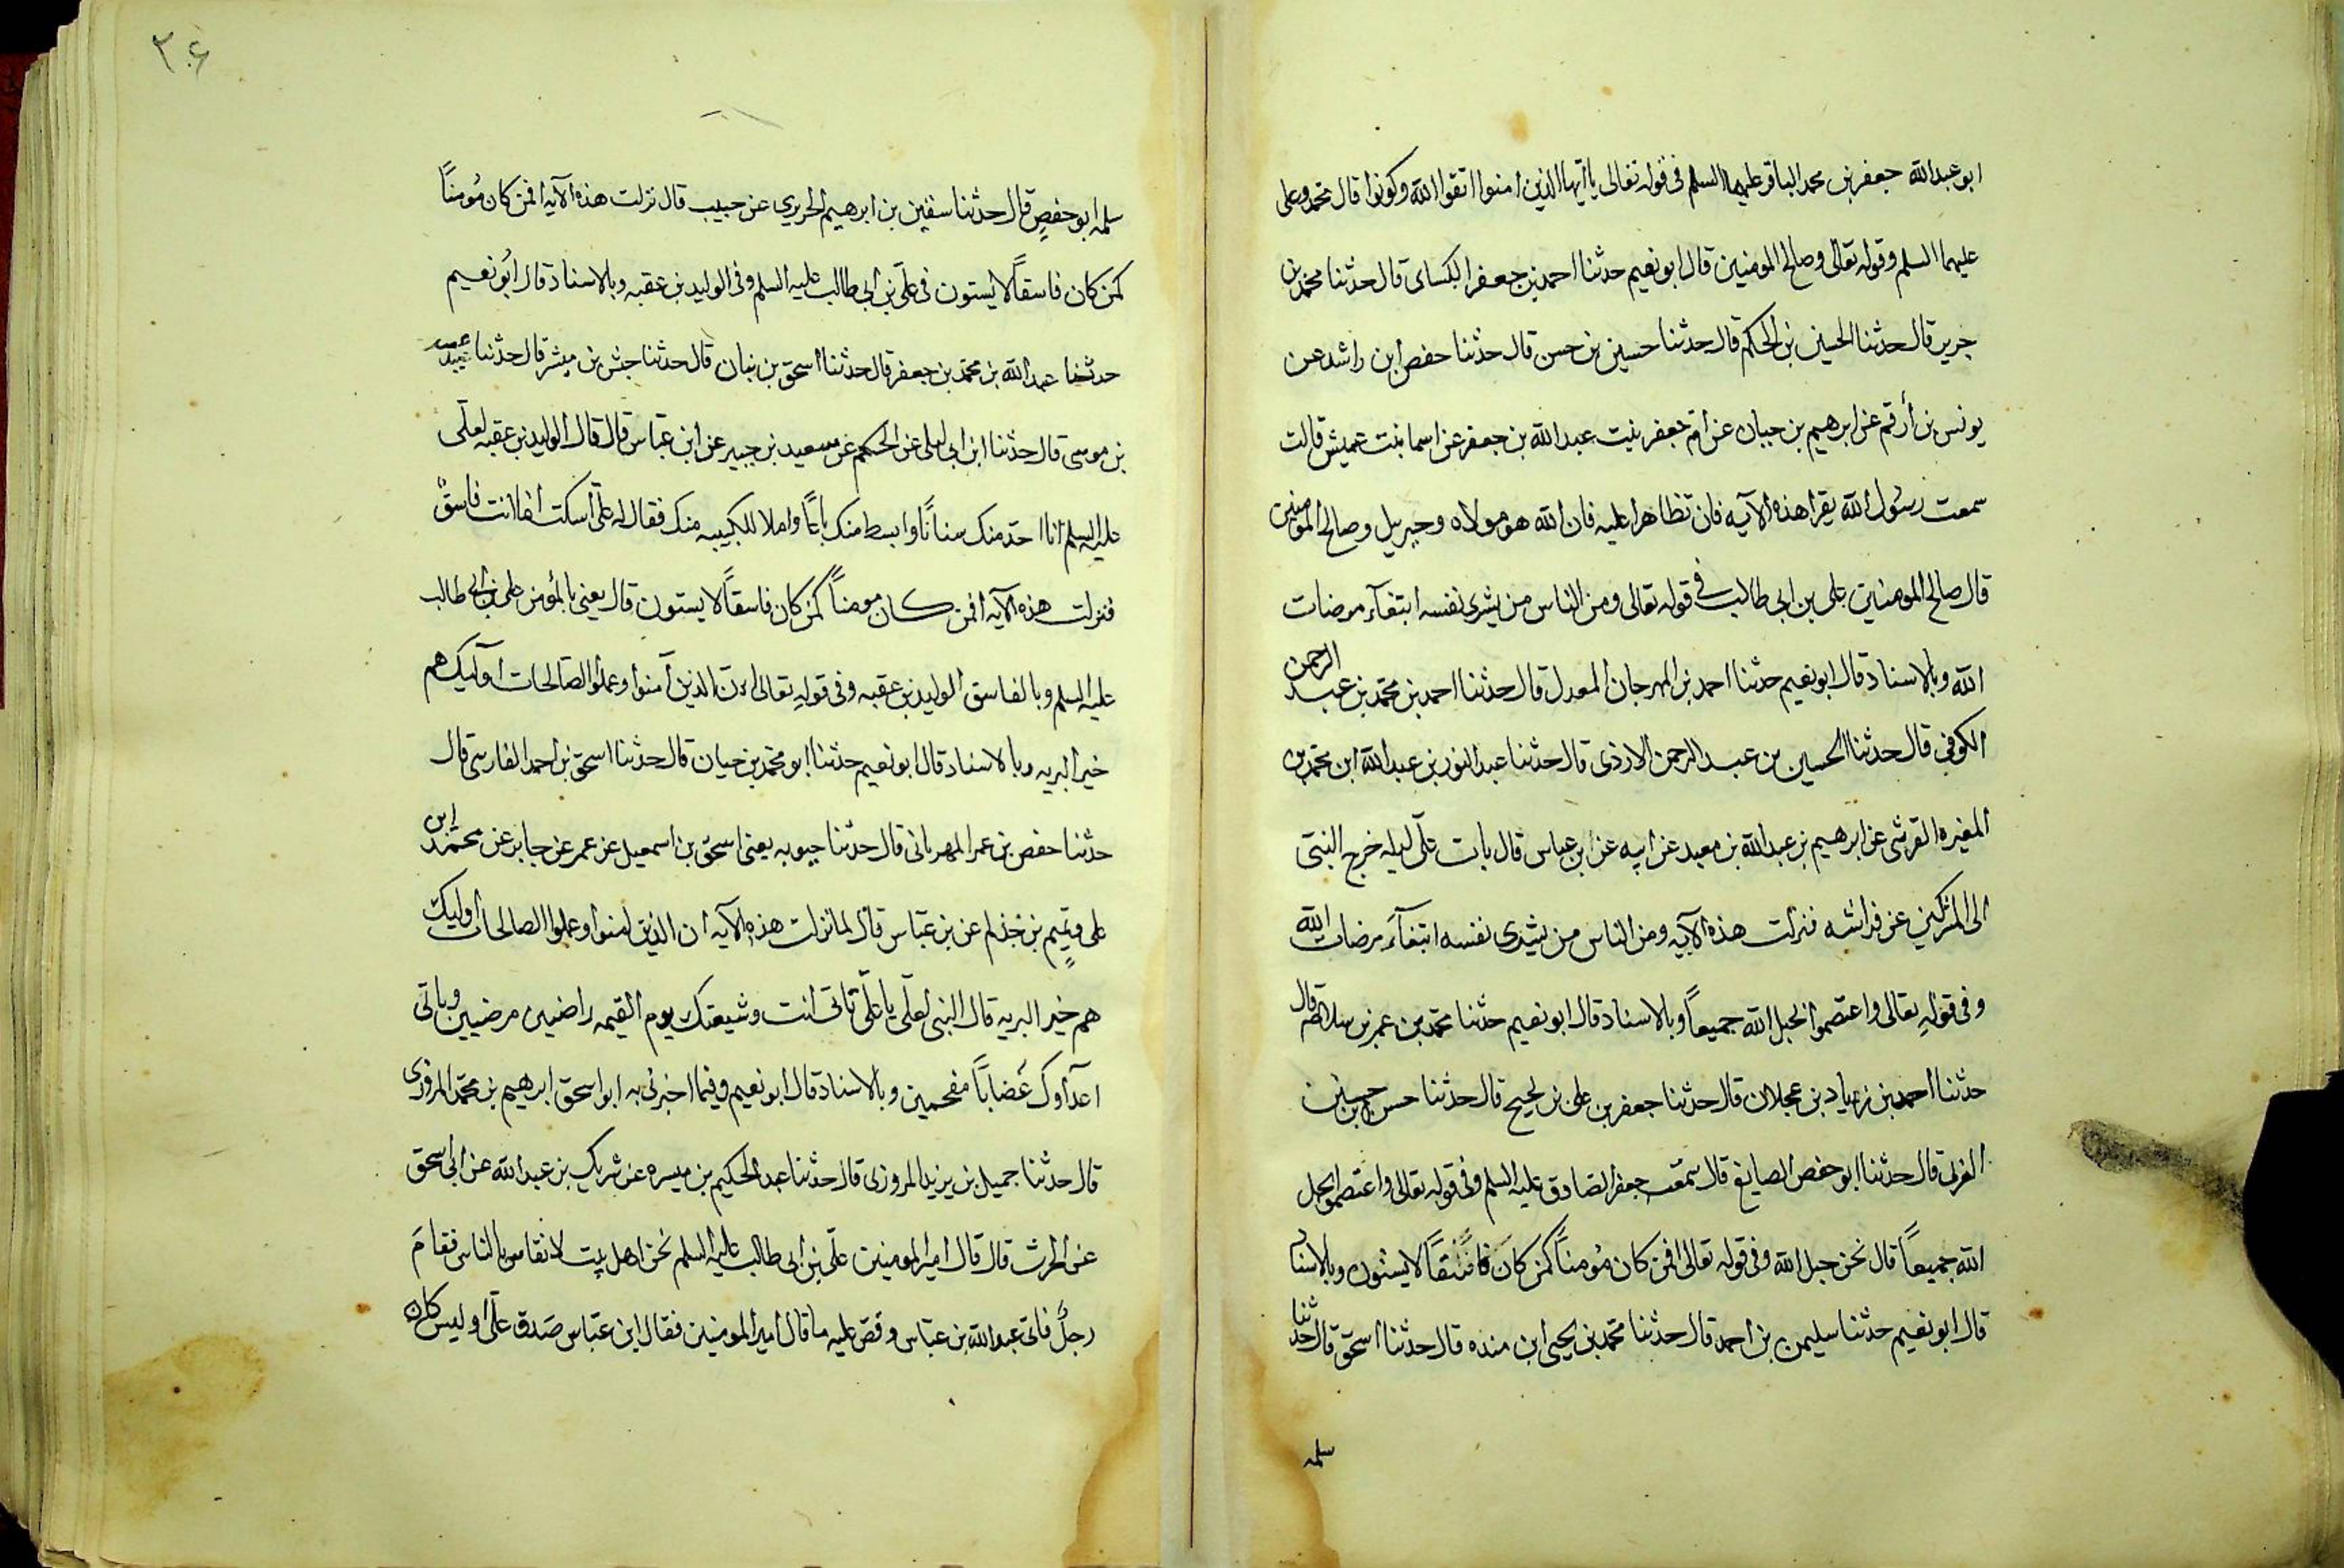 ابو عبد الله جعفر بن محمد الباقر عليهما السلم فى قوله تعالى يا ايها الذين امنوا اتقوا الله وكونوا قال محمد وعلى
عليهما السلم وقوله تعالى وصالح المومنين قال ابو نعيم حدثنا احمد بن جعفر الكساى قال حدثنا محمد بن
جرير قال حدثنا الحسين بن الحكم قال حدثنا حسين بن حسن قال حدثنا حفص ابن راشد عن
يونس بن أرقم عن ابرهيم بن حبان عن ام جعفر بنت عبد الله بن جعفر عن اسما بنت عميش قالت
سمعت رسول الله يقرا هذه الايه فان تظاهرا عليه فان الله هو مولاه وجبريل وصالح المومنين
قال صالح المومنين على بن ابى طالب فى قوله تعالى ومن الناس من يشرى نفسه ابتغآء مرضات
الله وبالاسناد قال ابو نعيم حدثنا احمد بن المهرجان المعدل قال حدثنا احمد بن محمد بن عبد الرحمن
الكوفي قال حدثنا الحسين بن عبد الرحمن الازدى قال حدثنا عبد النور بن عبد الله ابن محمد بن
المغيره القرشى عن ابرهيم بن عبد الله بن معبد عن ابيه عن ابن عباس قال بات على ليله خرج النبى
الى المشركين عن فراشه فنزلت هذه الآيه ومن الناس من يشرى نفسه ابتغآء مرضات الله
وفى قوله تعالى واعتصموا بحبل الله جميعاً وبالاسناد قال ابو نعيم حدثنا محمد بن عمر بن سلام قال
حدثنا احمد بن زياد بن عجلان قال حدثنا جعفر بن على بن نجيح قال حدثنا حسن بن حسين
العرنى قال حدثنا ابو حفص الصايغ قال سمعت جعفر الصادق عليه السلم وفى قوله تعالى واعتصموا بحبل
الله جميعاً قال نحن حبل الله وفى قوله تعالى افمن كان مُومناً كمن كانَ فاسقاً لا يستون وبالاسناد
قال ابو نعيم حدثنا سليمن بن احمد قال حدثنا محمد بن يحيى ابن منده قال حدثنا اسحق قال حدثنا
سلمه
٢٠۶
سلمه ابو حفصٍ قال حدثنا سفين بن ابرهيم الحريري عن حبيب قال نزلت هذه الآيه افمن كان مُومناً
كمن كان فاسقاً لا يستون فى على بن ابى طالب عليه السلم وفى الوليد بن عقبه وبالاسناد قال ابُو نعيم
حدثنا عبد الله بن محمد بن جعفر قال حدثنا اسحق بن بنان قال حدثنا حبش بن مبشر قال حدثنا عبيد
بن موسى قال حدثنا ابن ابى ليلى عن الحكم عن سعيد بن جبير عن ابن عباس قال قال الوليد بن عقبه لعلى
عليه السلم انا احد منك سناناً وابسط منك باعاً واملا للكتيبه منك فقال له على اسكت انما انت فاسقٌ
فنزلت هذه الآيه افمن كان مومناً كمن كان فاسقاً لا يستون قال يعنى بالمؤمن على بن ابى طالب
عليه السلم وبالفاسق الوليد بن عقبه وفى قوله تعالى ان الذين آمنوا وعملوا الصالحات اوليك هم
خير البريه وبالاسناد قال ابو نعيم حدثنا ابو محمد بن حيان قال حدثنا اسحق بن احمد الفارسى قال
حدثنا حفص بن عمر المهرقانى قال حدثنا حيويه يعنى اسحق بن اسمعيل عن عمر عن جابر عن محمد ابن
على وتميم بن حذلم عن بن عباس قال لما نزلت هذه الآيه ان الذين امنوا وعملوا الصالحات اوليك
هم خير البريه قال النبى لعلى يا على تاتى انت وشيعتك يوم القيمه راضين مرضيين وياتى
اعدآوك غضاباً مقحمين وبالاسناد قال ابو نعيم وفيما اخبرنى به ابو اسحق ابرهيم بن محمد المروزى
قال حدثنا جميل بن يزيد المروزى قال حدثنا عبد الحكيم بن ميسره عن شريك بن عبد الله عن ابى اسحق
عن الحرث قال قال امير المومنين على بن ابى طالب عليه السلم نحن اهل بيت لا نقاس بالناس فقامَ
رجلٌ فاتى عبد الله بن عباس وقص عليه ما قال امير المومنين فقال ابن عباس صدق على او ليس كان